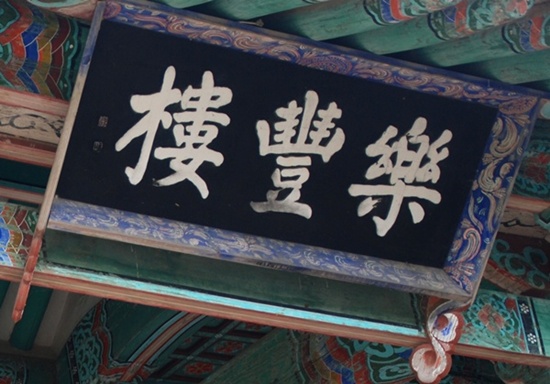 樂豐樓